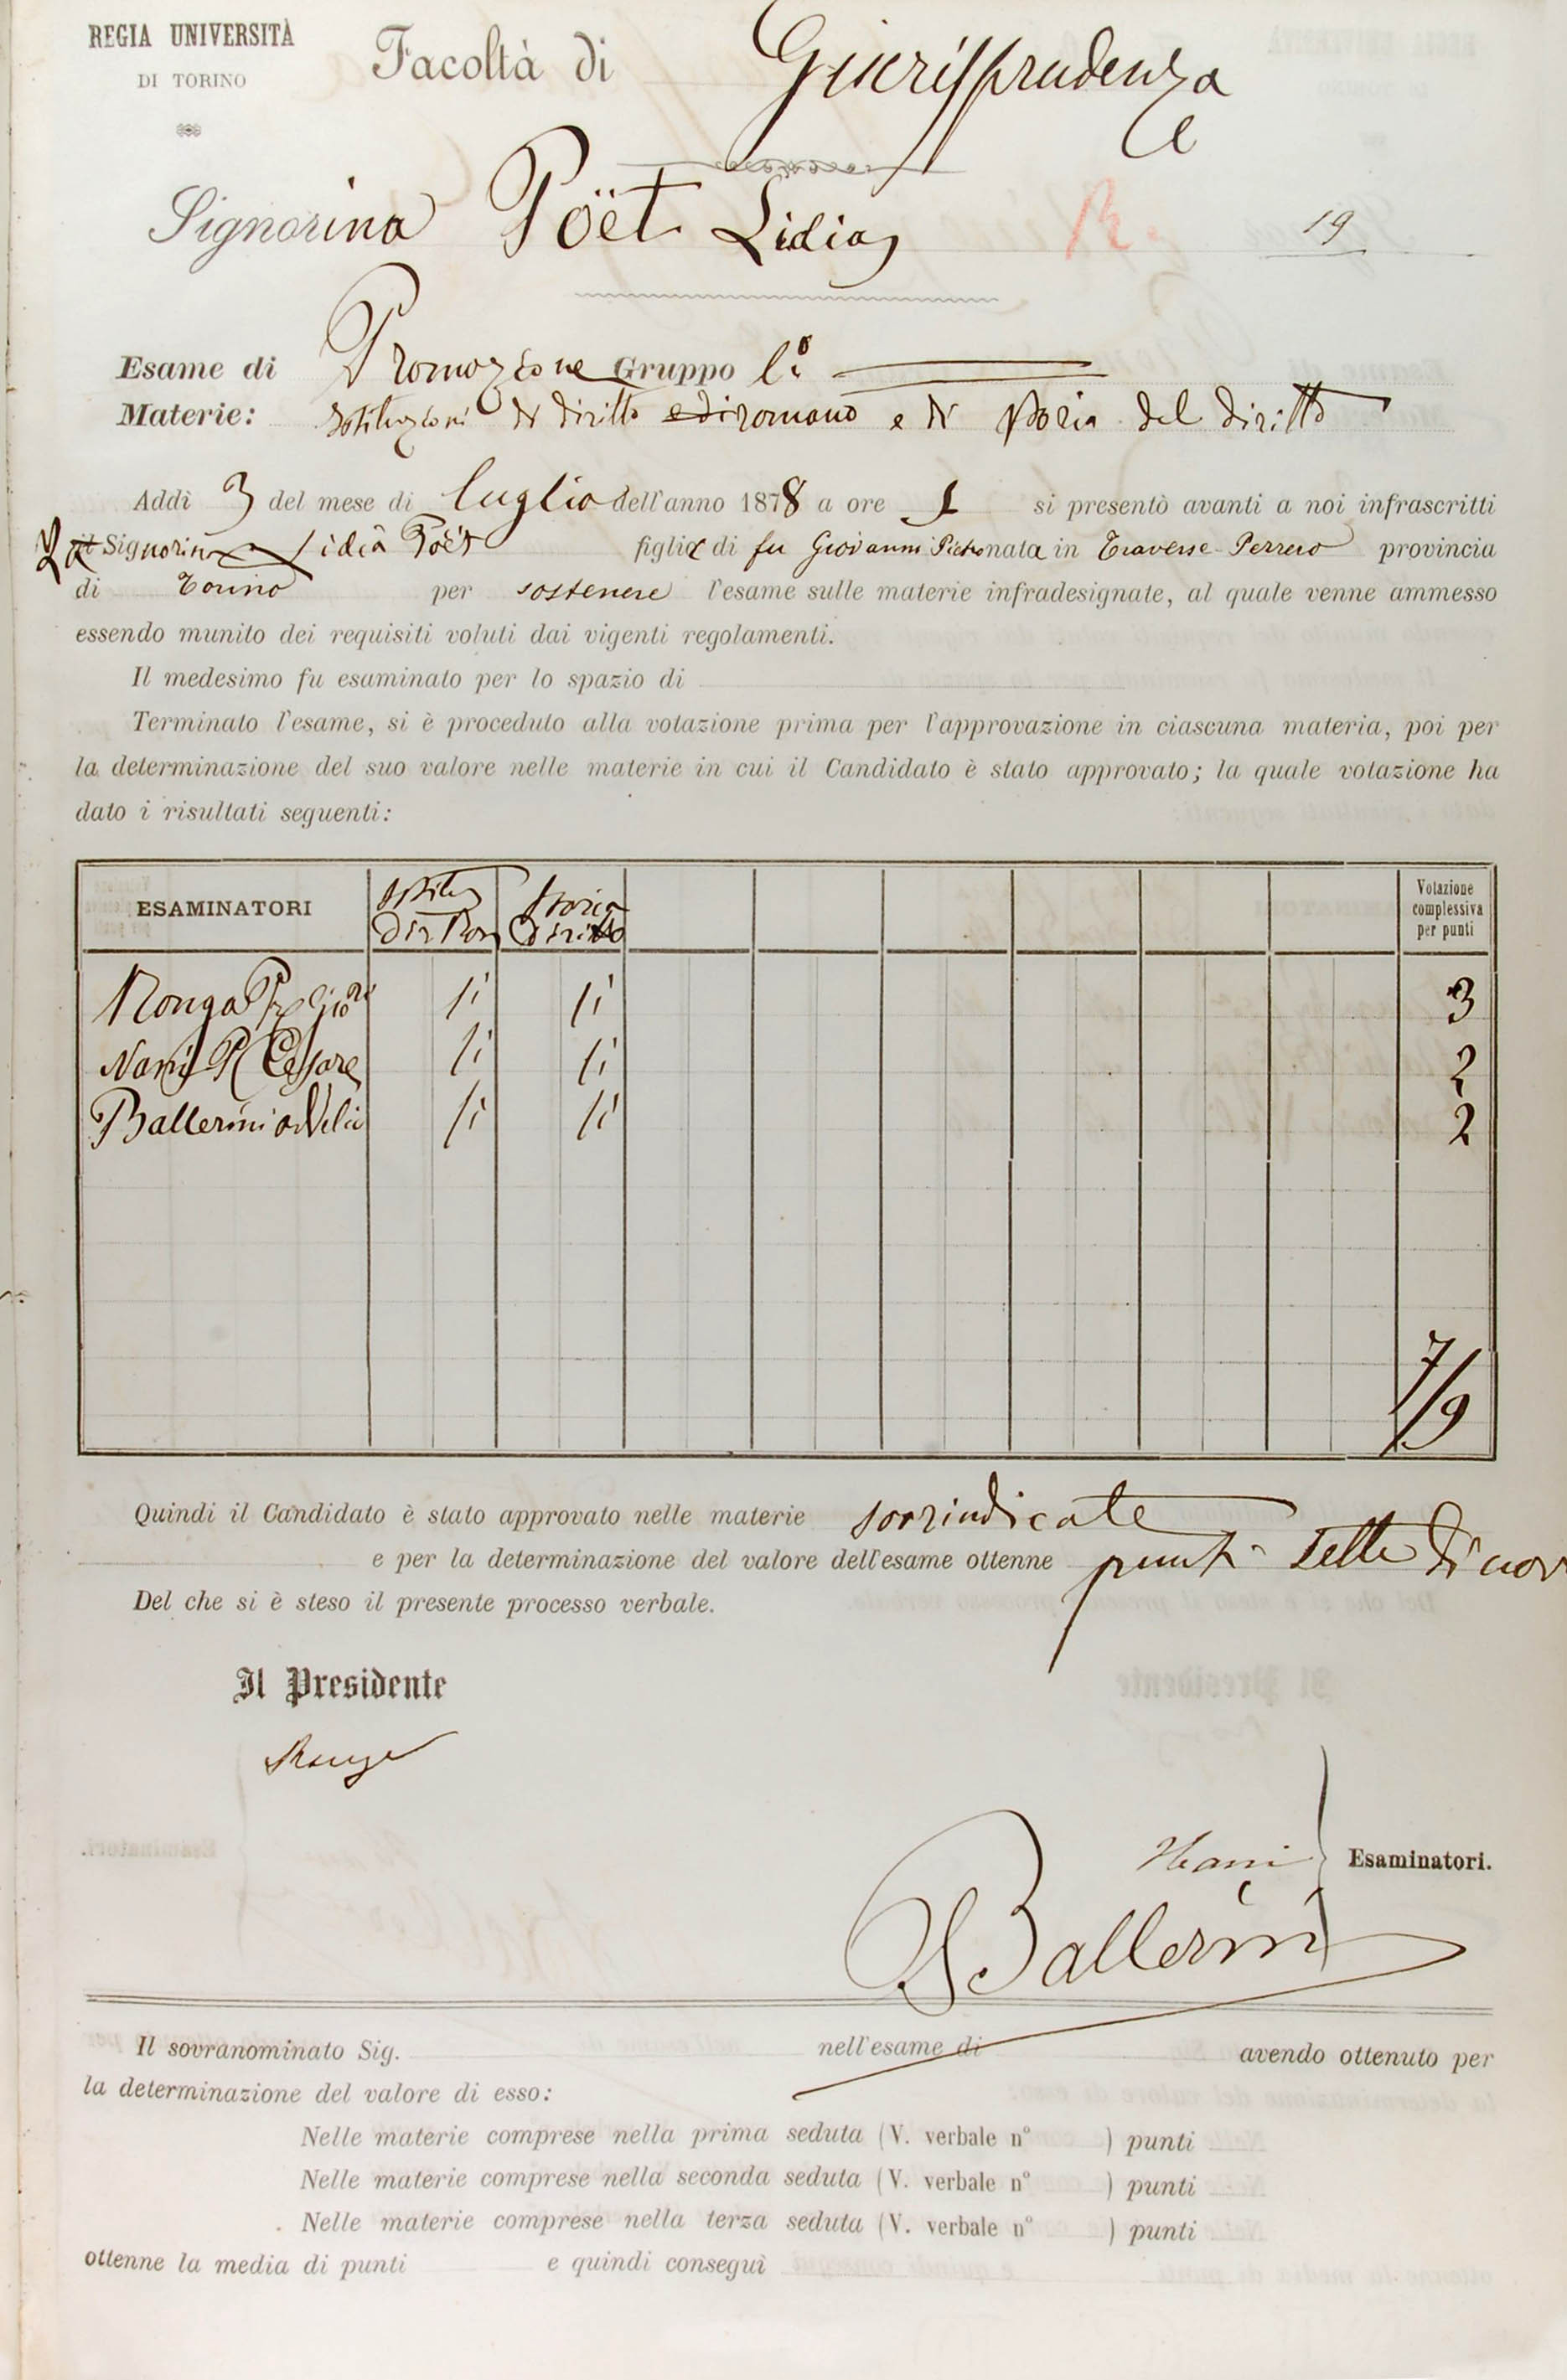 REGIA UNIVERSITÀ
DI TORINO
Facoltà di Giurisprudenza
Signorina Pöët Lidia 19
Esame di Promozione Gruppo 1°
Materie: Istituzioni di diritto e di romano e di Storia del diritto
Addì 3 del mese di luglio dell'anno 1878 a ore 1 si presentò avanti a noi infrascritti
La il Signorina Lidia Poët figlia di fu Giovanni Pietro nata in Traverse-Perrero provincia
di Torino per sostenere l'esame sulle materie infradesignate, al quale venne ammesso
essendo munito dei requisiti voluti dai vigenti regolamenti.
Il medesimo fu esaminato per lo spazio di
Terminato l'esame, si è proceduto alla votazione prima per l'approvazione in ciascuna materia, poi per
la determinazione del suo valore nelle materie in cui il Candidato è stato approvato; la quale votazione ha
dato i risultati seguenti:
ESAMINATORI Istituz Dir Rom Storia diritto Votazione complessiva per punti
Ronga Pr Gio si si 3
Nani Pr Cesare si si 2
Ballerini si si 2
7/9
Quindi il Candidato è stato approvato nelle materie sovrindicate
e per la determinazione del valore dell'esame ottenne punti sette di nov
Del che si è steso il presente processo verbale.
Il Presidente
Ronga
Nani Esaminatori.
Ballerini
Il sovranominato Sig. nell'esame di avendo ottenuto per
la determinazione del valore di esso:
Nelle materie comprese nella prima seduta (V. verbale n° ) punti
Nelle materie comprese nella seconda seduta (V. verbale n° ) punti
Nelle materie comprese nella terza seduta (V. verbale n° ) punti
ottenne la media di punti e quindi conseguì